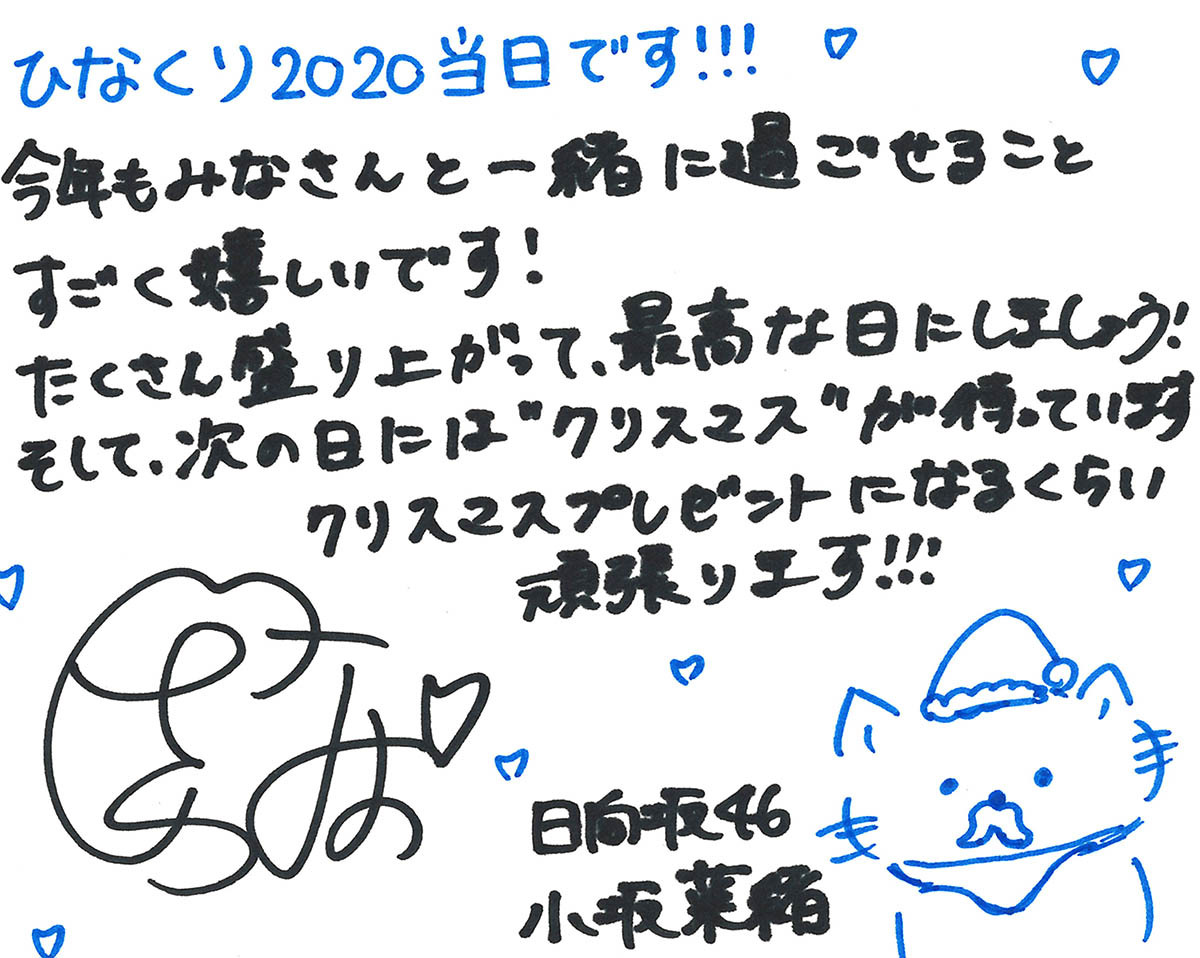 ひなくり2020当日です!!!
今年もみなさんと一緒に過ごせること
すごく嬉しいです!
たくさん盛り上がって、最高な日にしましょう!
そして、次の日には"クリスマス"が待っています
クリスマスプレゼントになるくらい
頑張ります!!!
日向坂46
小坂菜緒